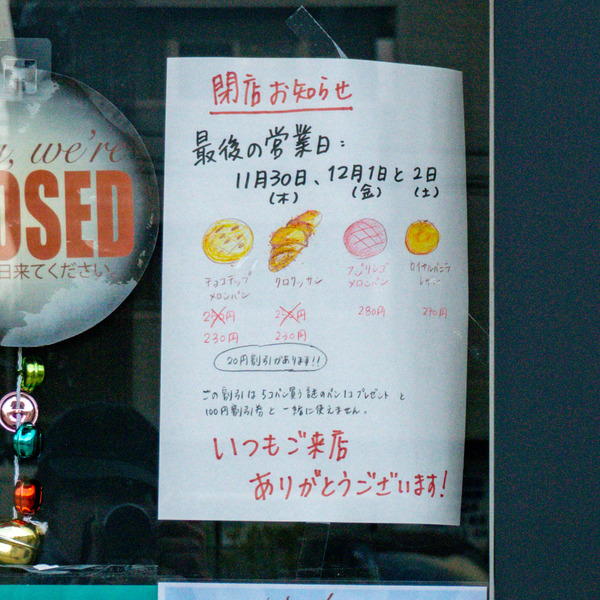 we're
OSED
日来てください。
閉店お知らせ
最後の営業日:
11月30日、12月1日と2日
(木) (金) (土)
チョコチップ
メロンパン
クロワッサン
メロンパン
ロイヤルバニラ
250円 250円 280円 270円
230円 230円
20円割引があります!!
この割引は5コパン買う誌のパン1コプレゼント と
100円割引券と一緒に使えません。
いつもご来店
ありがとうございます!